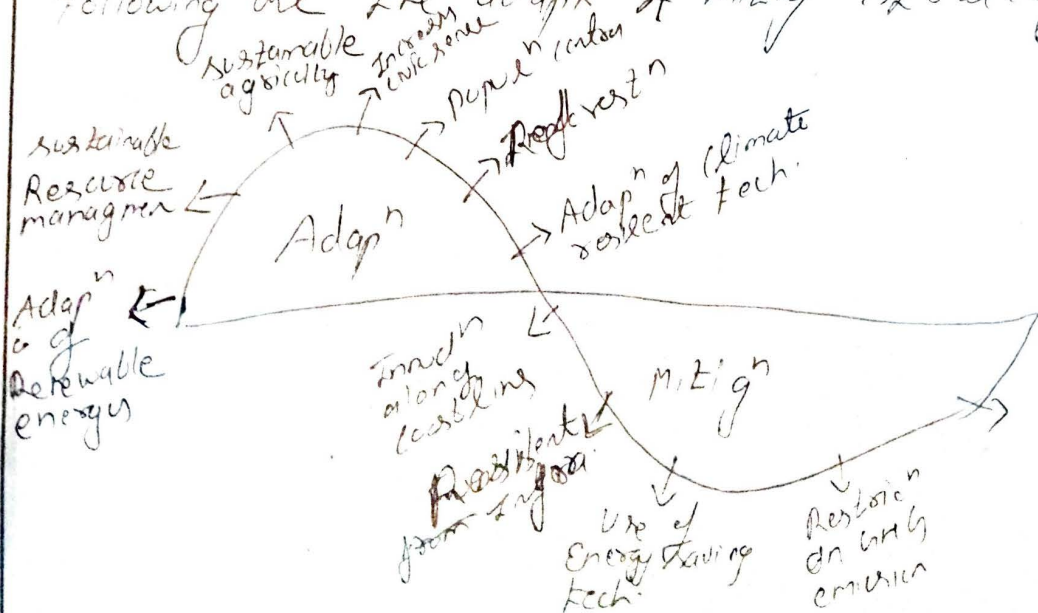 Following are the
of
sustainable
agricully
Increas
civic sense
Populⁿ control
Reforestⁿ
Adapⁿ of climate
resilent tech.
sustainable
Resource
managmen
Adapⁿ
Adapⁿ
of
Renewable
energy
Mitigⁿ
along
coastlins
Resilient
from Infra.
Use of
Energy saving
tech.
Restricⁿ
on GHG
emission